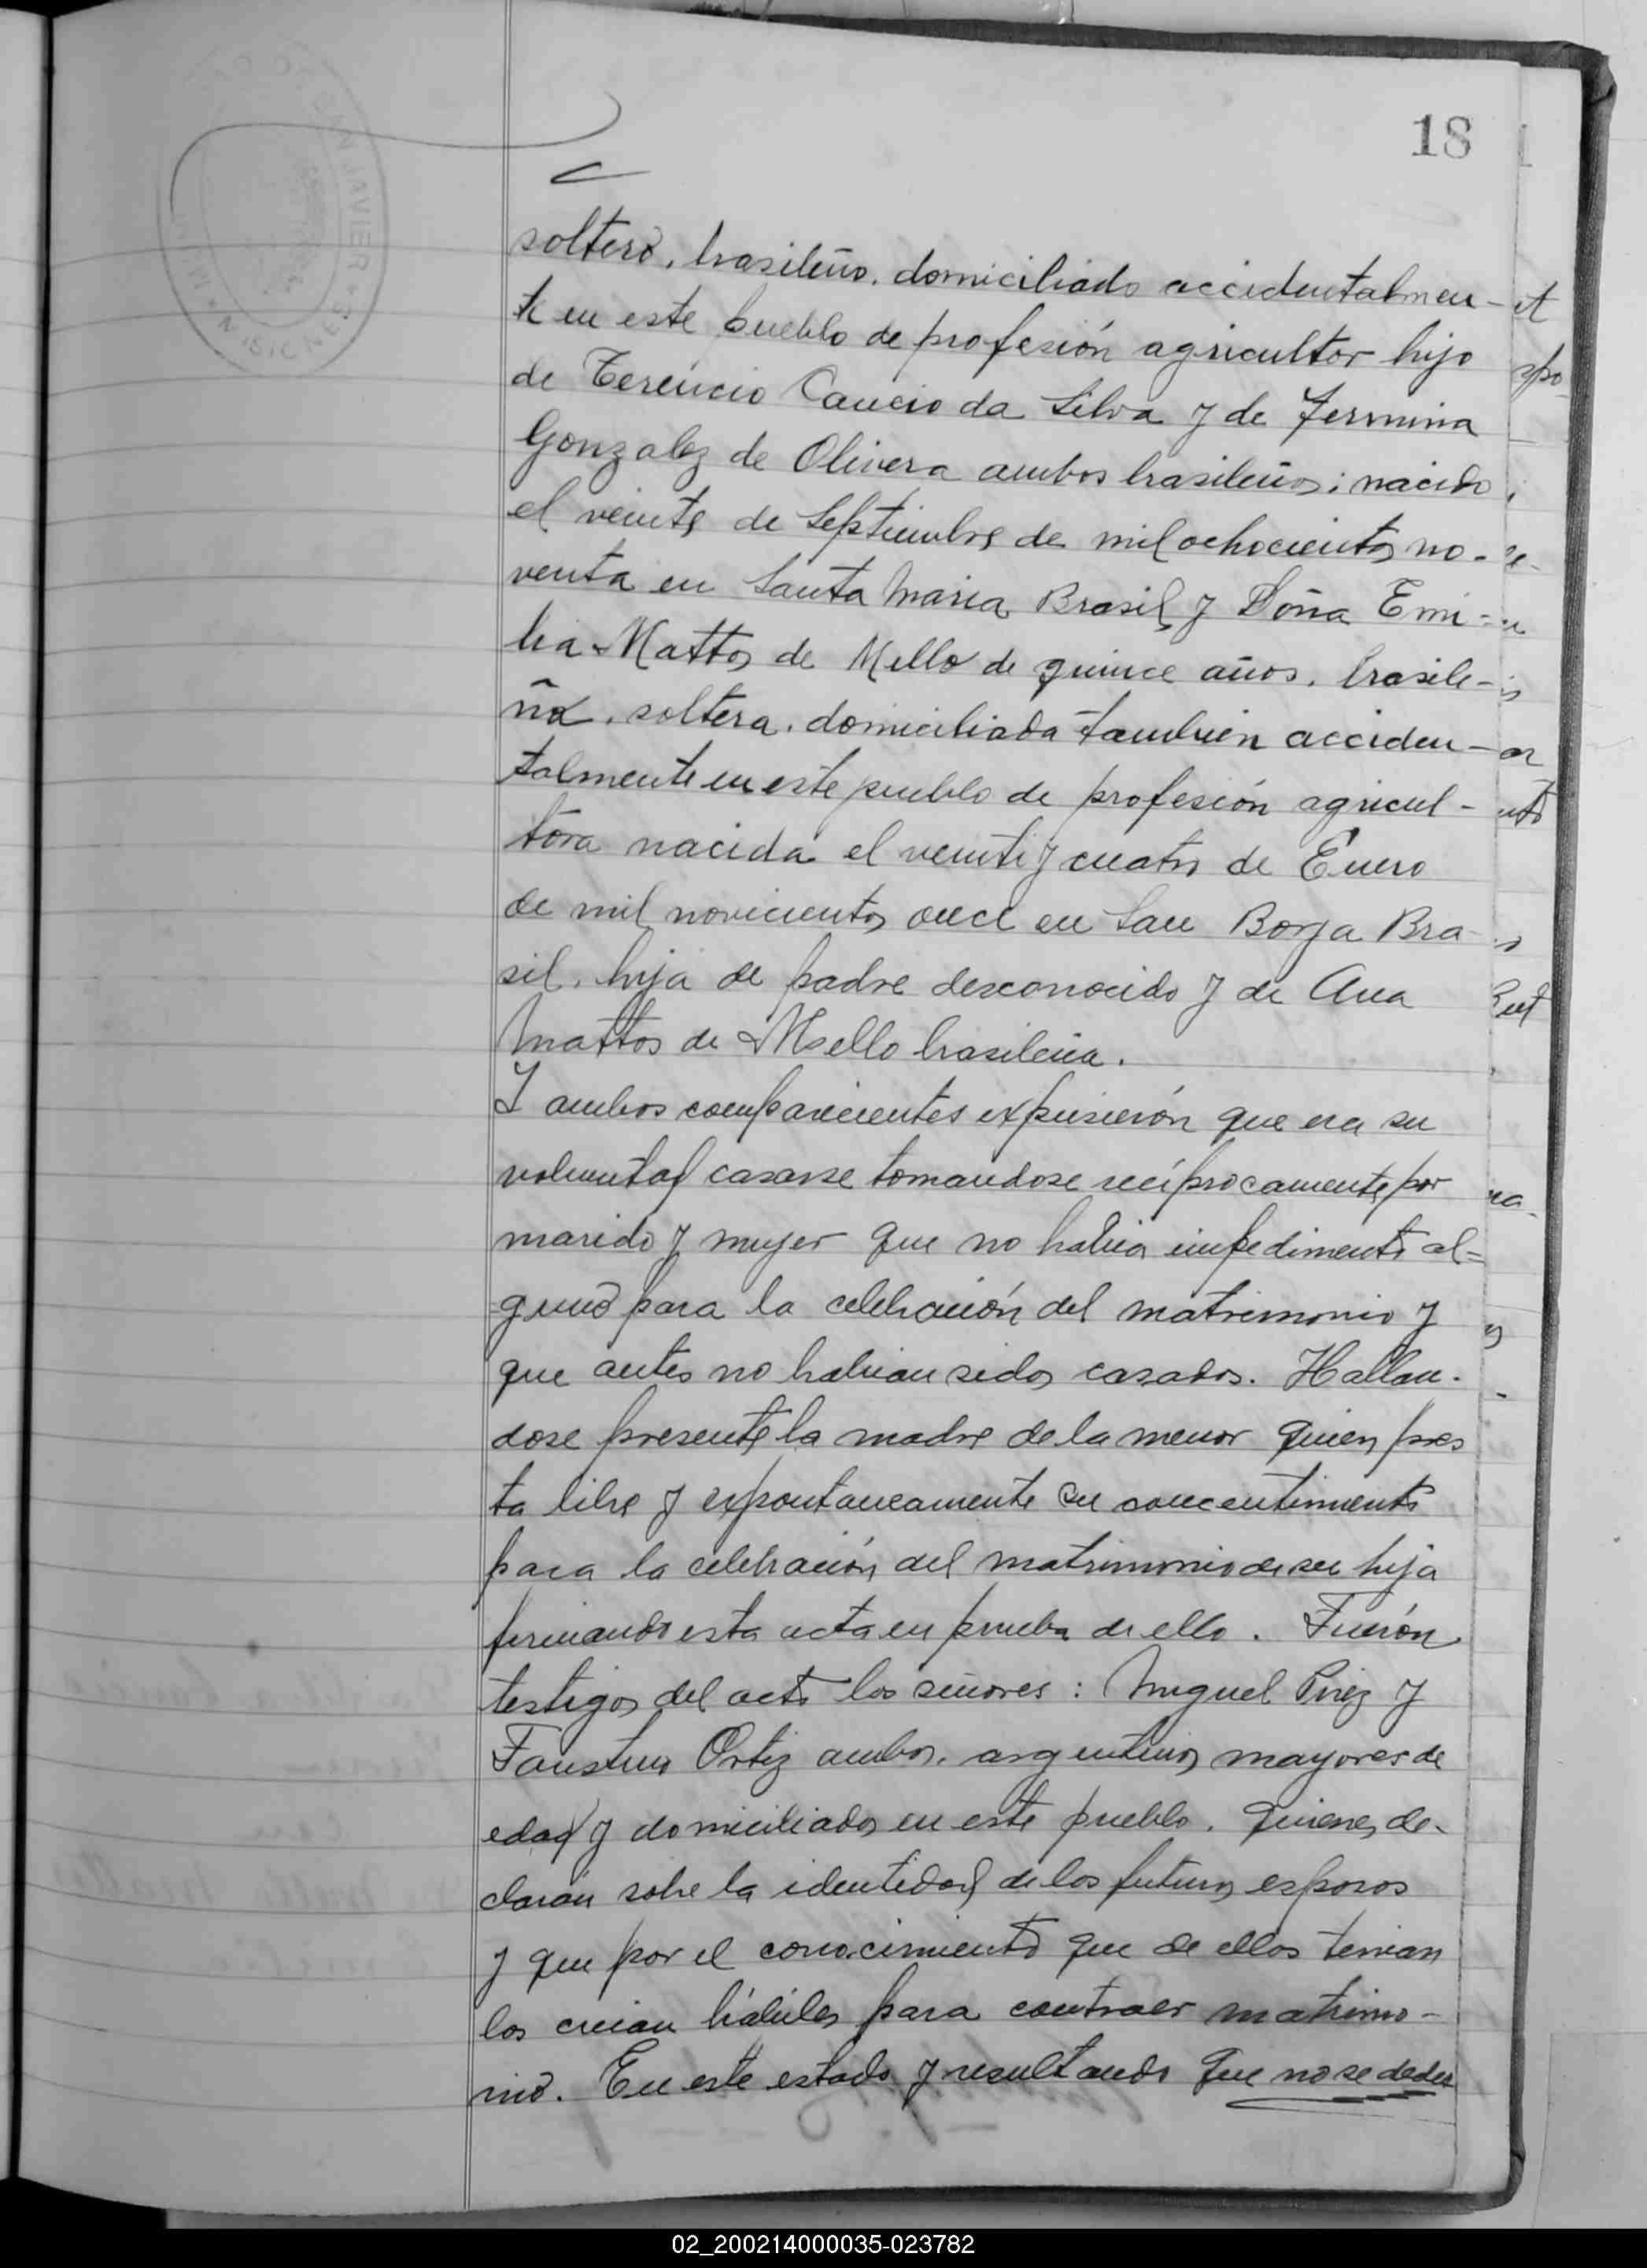 18
soltero, brasileño, domiciliado accidentalmen-
te en este pueblo de profesión agricultor hijo
de Terencio Cancio da Silva y de Fermina
Gonzalez de Olivera ambos brasileños; nacido
el veinte de Septiembre de mil ochocientos no-
venta en Santa Maria Brasil y Doña Emi-
lia Mattos de Mello de quince años, brasile-
ña, soltera, domiciliada también acciden-
talmente en este pueblo de profesión agricul-
tora nacida el veinte y cuatro de Enero
de mil novecientos once en San Borja Bra
sil, hija de padre desconocido y de Ana
Mattos de Mello brasileña.
Y ambos comparecientes expusierón que era su
voluntad casarse tomandose recíprocamente por
marido y mujer que no habia impedimento al=
guno para la celebración del matrimonio y
que antes no habian sidos casados. Hallan-
dose presente la madre de la menor quien pres
ta libre y expontaneamente su concentimiento
para la celebración del matrimonio de su hija
firmando esta acta en prueba de ello. Fuerón
testigos del acto los señores: Miguel Pirez y
Faustino Ortiz ambos, argentinos mayores de
edad y domiciliados en este pueblo, quienes de-
claran sobre la identidad de los futuros esposos
y que por el conocimiento que de ellos tenian
los creian hábiles para contraer matrimo-
nio. En este estado y resultando que no se dedu
SAN JAVIER
MISIONES
02_200214000035-023782